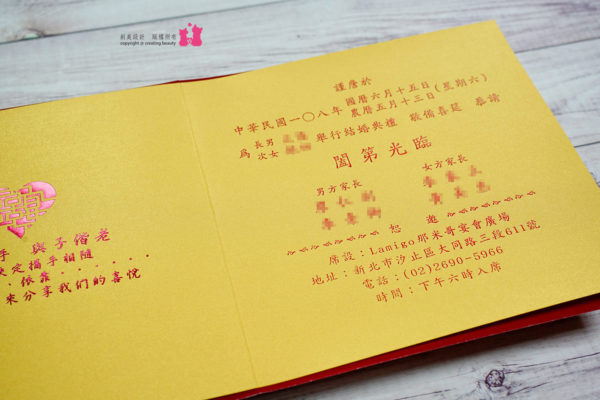 創美設計 版權所有
copyright @ creating beauty
謹詹於
中華民國一〇八年 國曆六月十五日(星期六)
農曆五月十三日
為 長男 次女 舉行結婚典禮 敬備喜筵 恭請
闔第光臨
男方家長 女方家長
恕 邀
席設：Lamigo那米哥宴會廣場
地址：新北市汐止區大同路三段611號
電話：(02)2690-5966
時間：下午六時入席
手 與子偕老
決定攜手相隨
．依靠．．．．．．
來分享我們的喜悅